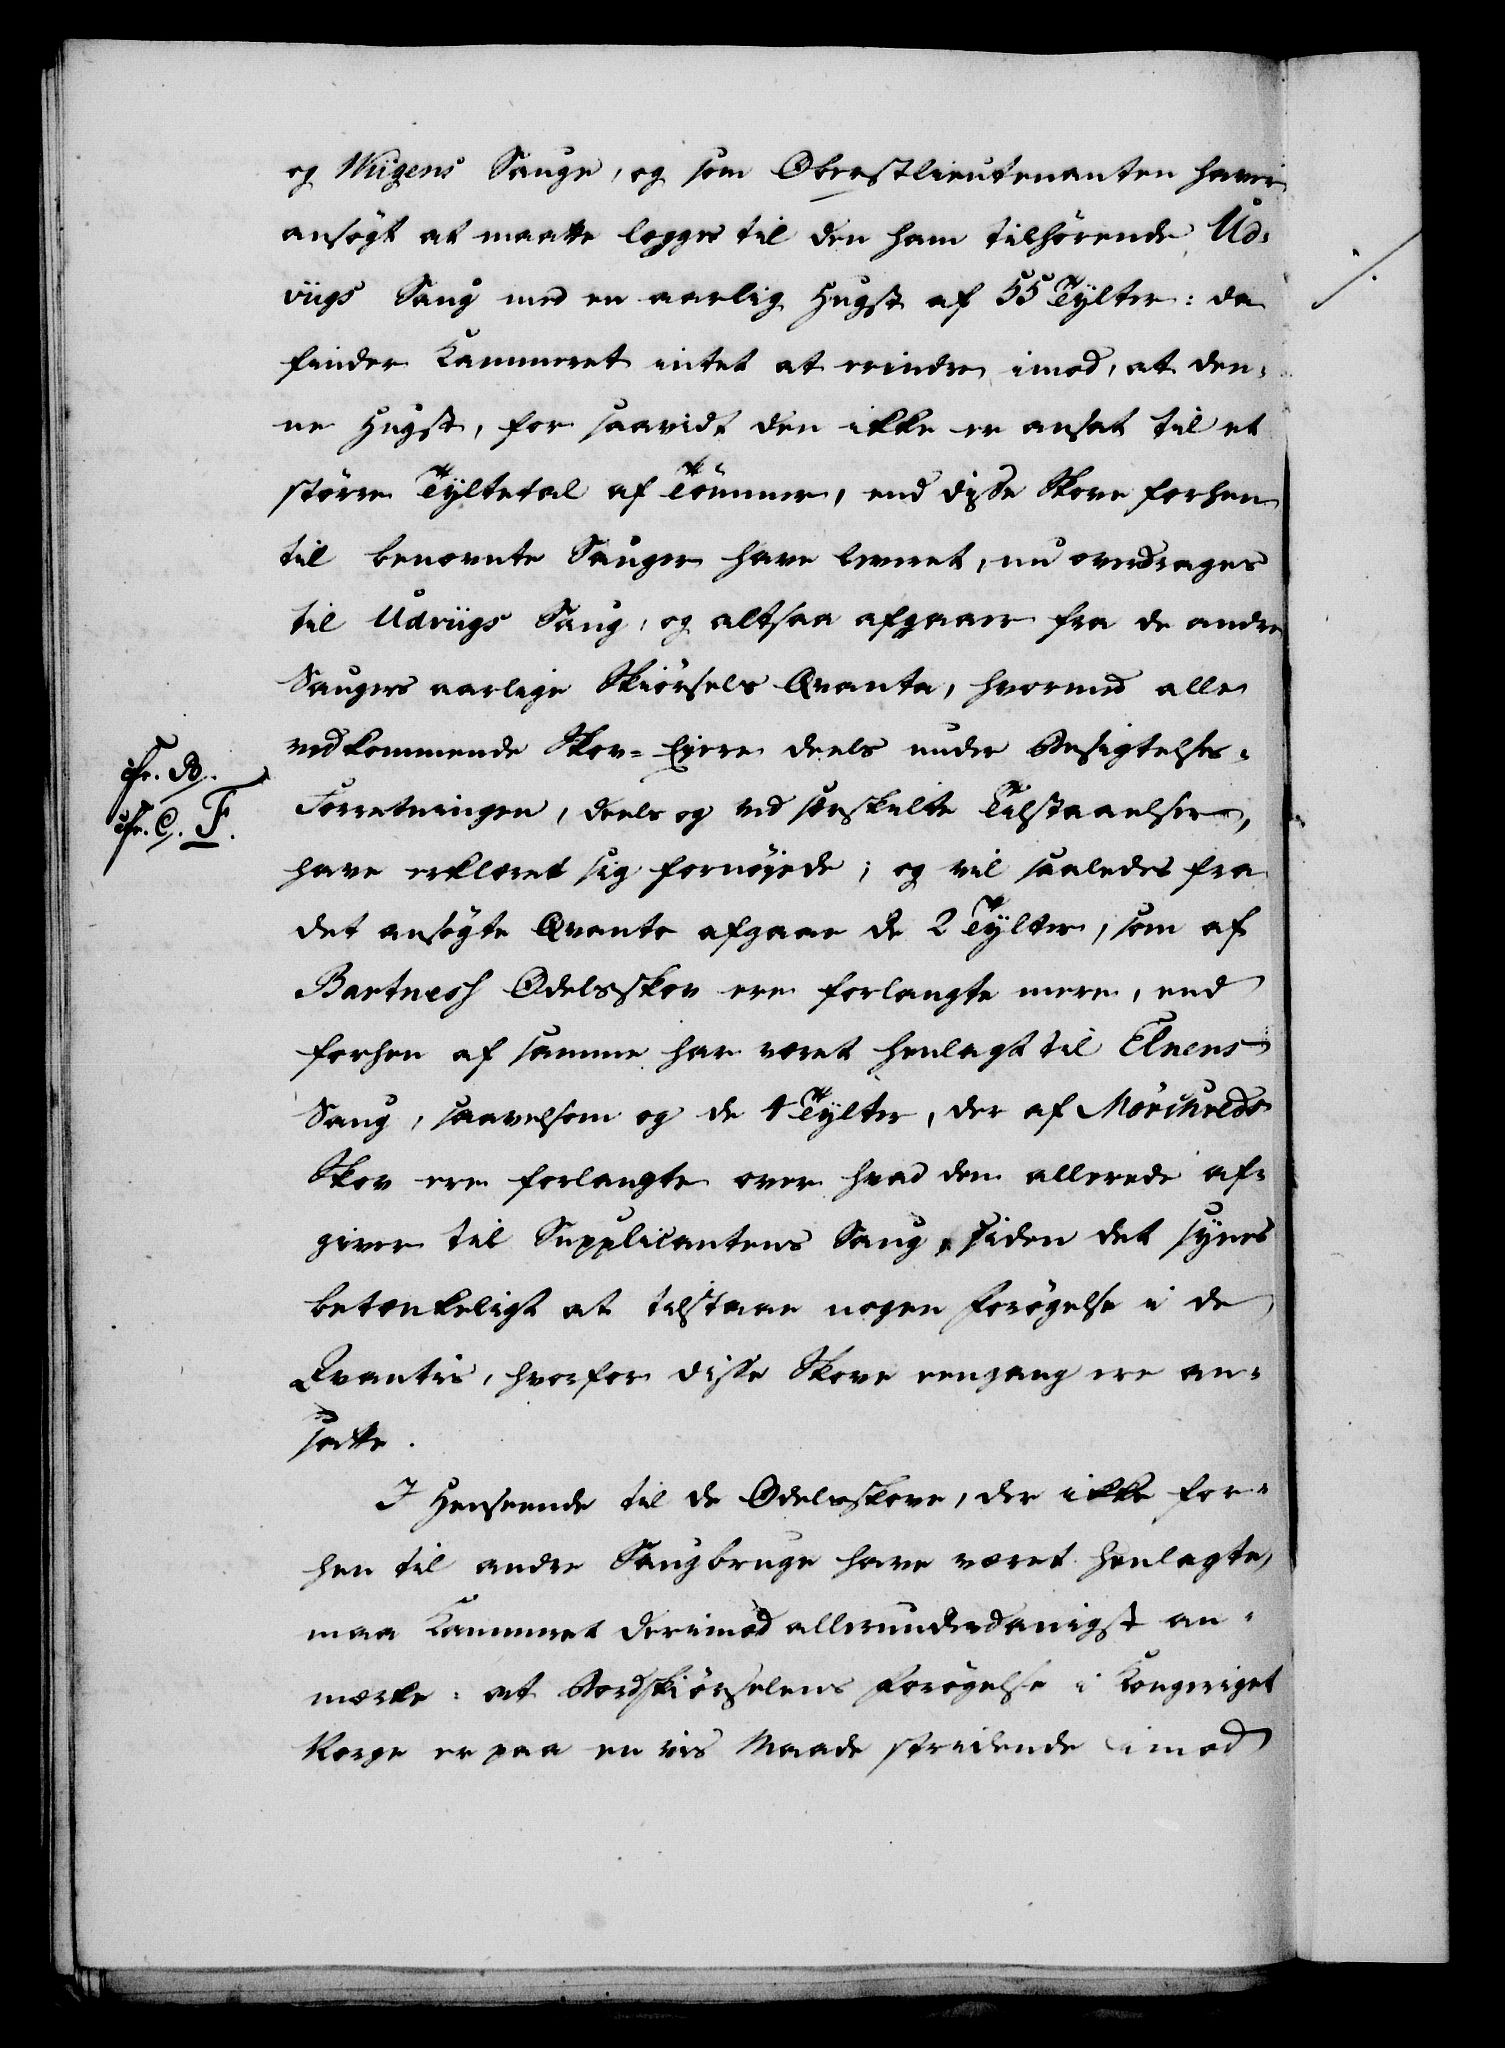 og Wiigens Sauge, og som Oberstlieutenanten haver
ansögt at maatte legges til den ham tilhörende Ud-
viigs Saug med en aarlig Hugst af 55 Tylter: da
finder Kammeret intet at erindre imod, at den-
ne Hugst, for saavidt den ikke er ansat til et
större Tyltetal af Tömmer, end disse Skove forhen
til benevnte Sauger have leveret, nu overdrages
til Udviigs Saug, og altsaa afgaaer fra de andre
Saugers aarlige Skiörsels Qvanta, hvormed alle
vedkommende Skov-Eyere deels under Besigtelses-
cfr. B.
cfr. C. F.
Forretningen, deels og ved særskilte Tilstaaelser,
have erklæret sig fornöyede; og vil saaledes fra
det ansögte Qvanto afgaae de 2 Tylter, som af
Bartness Odelsskov ere forlangte mere, end
forhen af samme har været henlagt til Elnens
Saug, saavelsom og de 4 Tylter, der af
Skov ere forlangte over hvad den allerede af-
giver til Supplicantens Saug, siden det synes
betænkeligt at tilstaae nogen Forögelse i de
Qvantis, hvorfor disse Skove eengang ere an-
satte.
I Henseende til de Odelsskove, der ikke for-
hen til andre Saugbruge have været henlagte,
maa Kammeret derimod allerunderdanigst an-
mærke: at Bordskiörselens Forögelse i Kongeriget
Norge er paa en vis Maade stridende imod